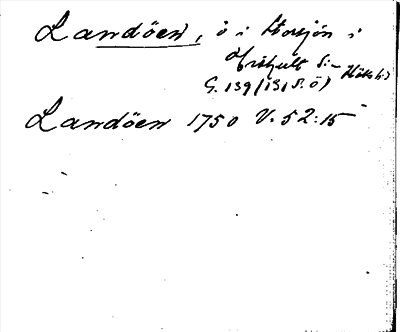 Landöen, ö i Storsjön i
Örkjult s:n
G. 139 (131 S. Ö)
Landöen 1750 V. 52:15